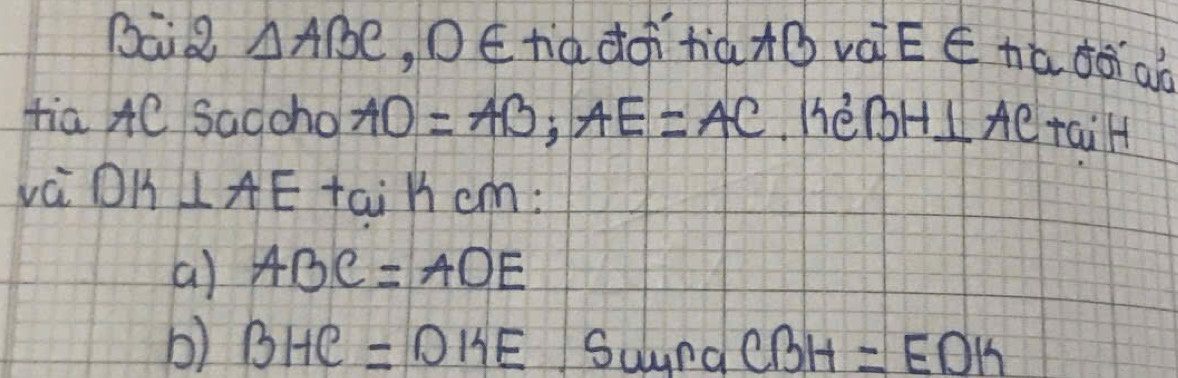 Bài 2 ΔABC, D ∈ tia đối tia AB và E ∈ tia đối của
tia AC sao cho AD = AB; AE = AC. Kẻ BH ⊥ AC tại H
và DK ⊥ AE tại K cm:
a) ABC = ADE
b) BHC = DKE Suy ra CBH = EDK